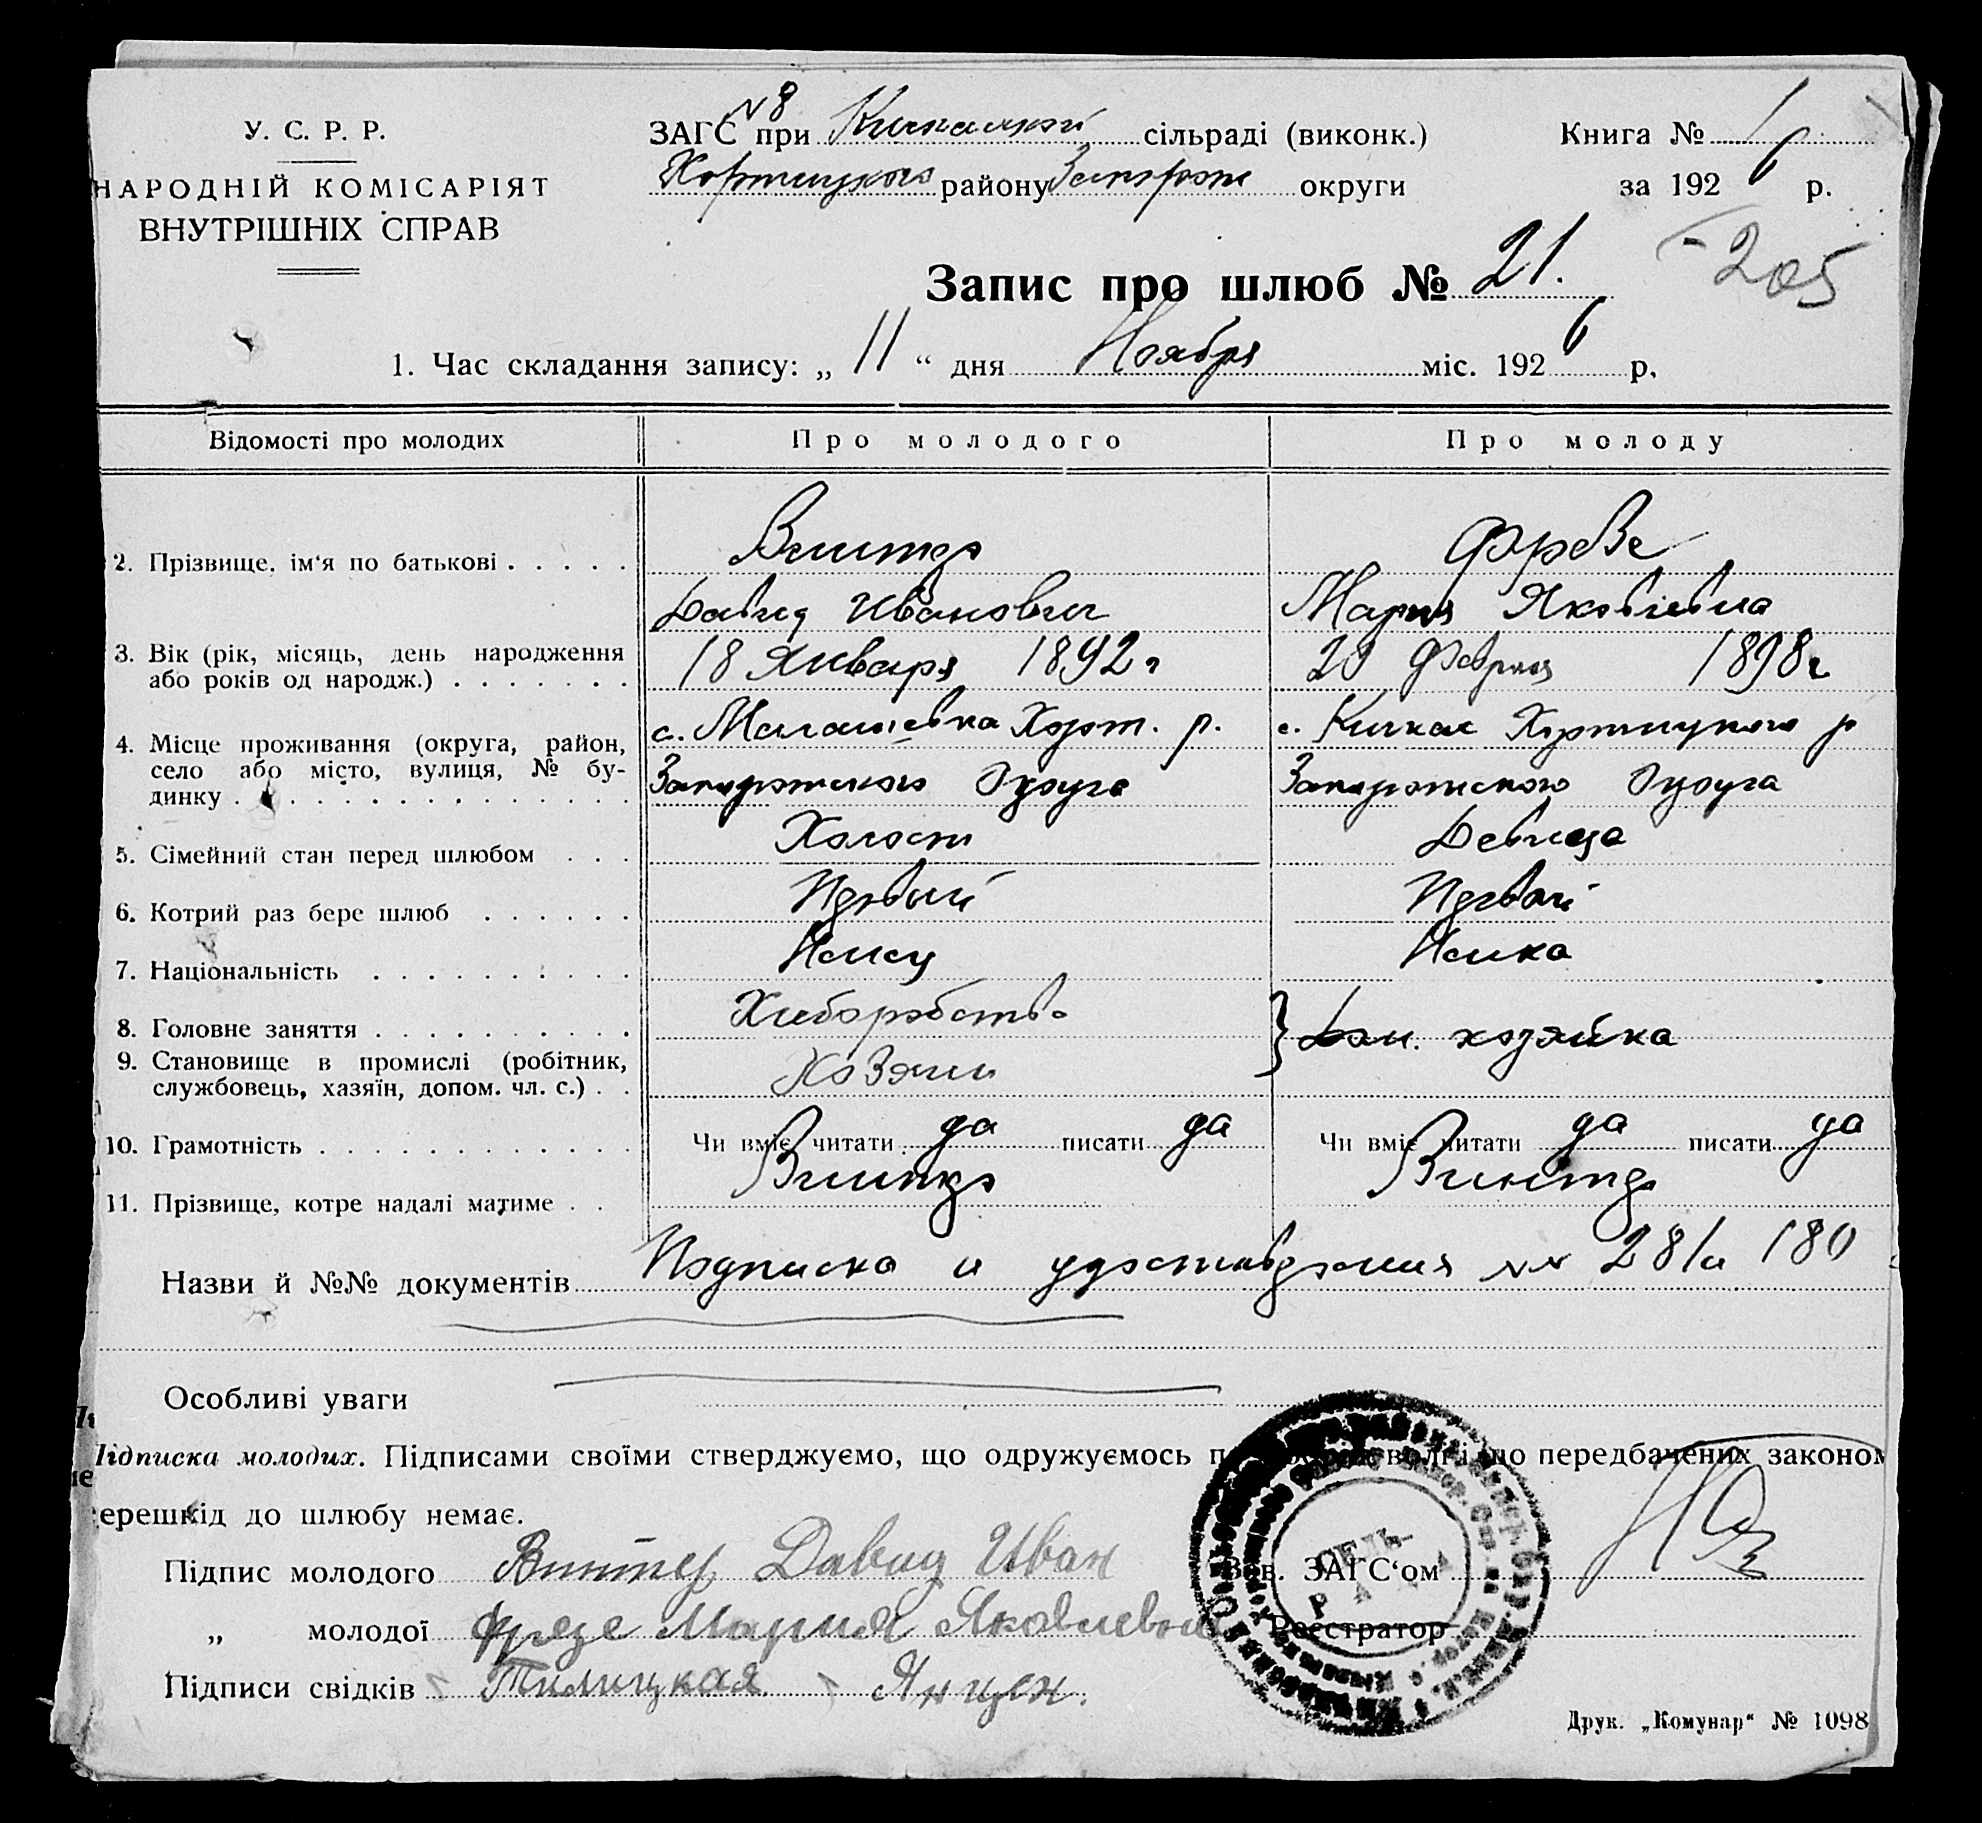 У. С. Р. Р.
НАРОДНІЙ КОМІСАРІЯТ
ВНУТРІШНІХ СПРАВ
ЗАГС №8 при Кичкасской сільраді (виконк.)
Хортицкого району Запорож округи
Книга № 1
за 1926 р.
Запис про шлюб № 21.
205
1. Час складання запису: „ 11 “ дня Ноября міс. 1926 р.
Відомості про молодих Про молодого Про молоду
2. Прізвище, ім‘я по батькові . . . . . Винтер Фрезе
Давид Иванович Мария Яковлевна
3. Вік (рік, місяць, день народження
або років од народж.) . . . . . . . 18 Января 1892 г 20 Февраля 1898 г
4. Місце проживання (округа, район,
село або місто, вулиця, № бу-
динку . . . . . . . . . . . . . . .
с. Малашевка Хорт. р. с. Кичкас Хортицкого р
Запорожского Округа Запорожского Округа
5. Сімейний стан перед шлюбом . . . Холост Девица
6. Котрий раз бере шлюб . . . . . . Первый Первый
7. Національність . . . . . . . . . . Немец Немка
8. Головне заняття . . . . . . . . . . Хлеборобство } Дом. хозяйка
9. Становище в промислі (робітник,
службовець, хазяїн, допом. чл. с.) . . Хозяин
10. Грамотність . . . . . . . . . . . . Чи вміє читати да писати да Чи вміє читати да писати да
11. Прізвище, котре надалі матиме . . Винтер Винтер
Назви й №№ документів Подписка и удостоверения №№ 281 и 180
Особливі уваги
Підписка молодих. Підписами своїми стверджуємо, що одружуємось по волі і що передбачених законом
перешкід до шлюбу немає.
Підпис молодого Винтер Давид Иван
Зав. ЗАГС‘ом
„ молодої Фрезе Мария Яковлевна
Реєстратор
Підписи свідків Тилицкая Янцен.
Друк. „Комунар“ № 1098